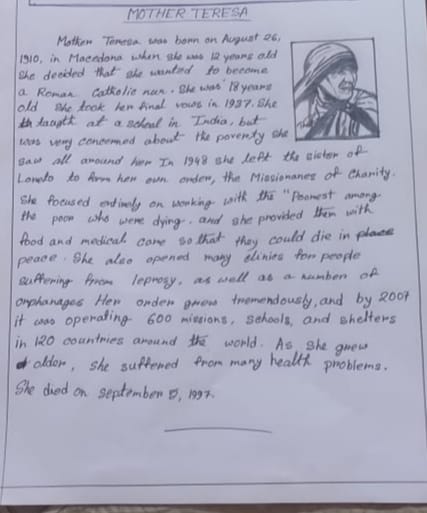 MOTHER TERESA
Mother Teresa was born on August 26,
1910, in Macedona when she was 12 years old
she decided that she wanted to become
a Roman Catholic nun. She was 18 years
old she took her final vows in 1937. She
taught at a school in India, but
was very concerned about the poverty she
saw all around her In 1948 she left the sister of
Loreto to form her own order, the Missionaries of Charity.
She focused entirely on working with the "Poorest among
the poor who were dying. and she provided them with
food and medical care so that they could die in place
peace. She also opened many clinies for people
suffering from leprosy, as well as a number of
orphanages Her order grew tremendously, and by 2007
it was operating 600 missions, schools, and shelters
in 120 countries around the world. As she grew
older, she suffered from many health problems.
She died on september 5, 1997.